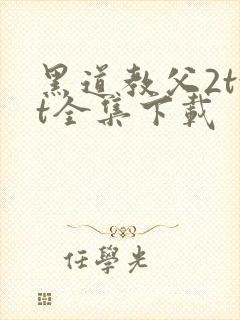 黑道教父2tx
t全集下載
任學光